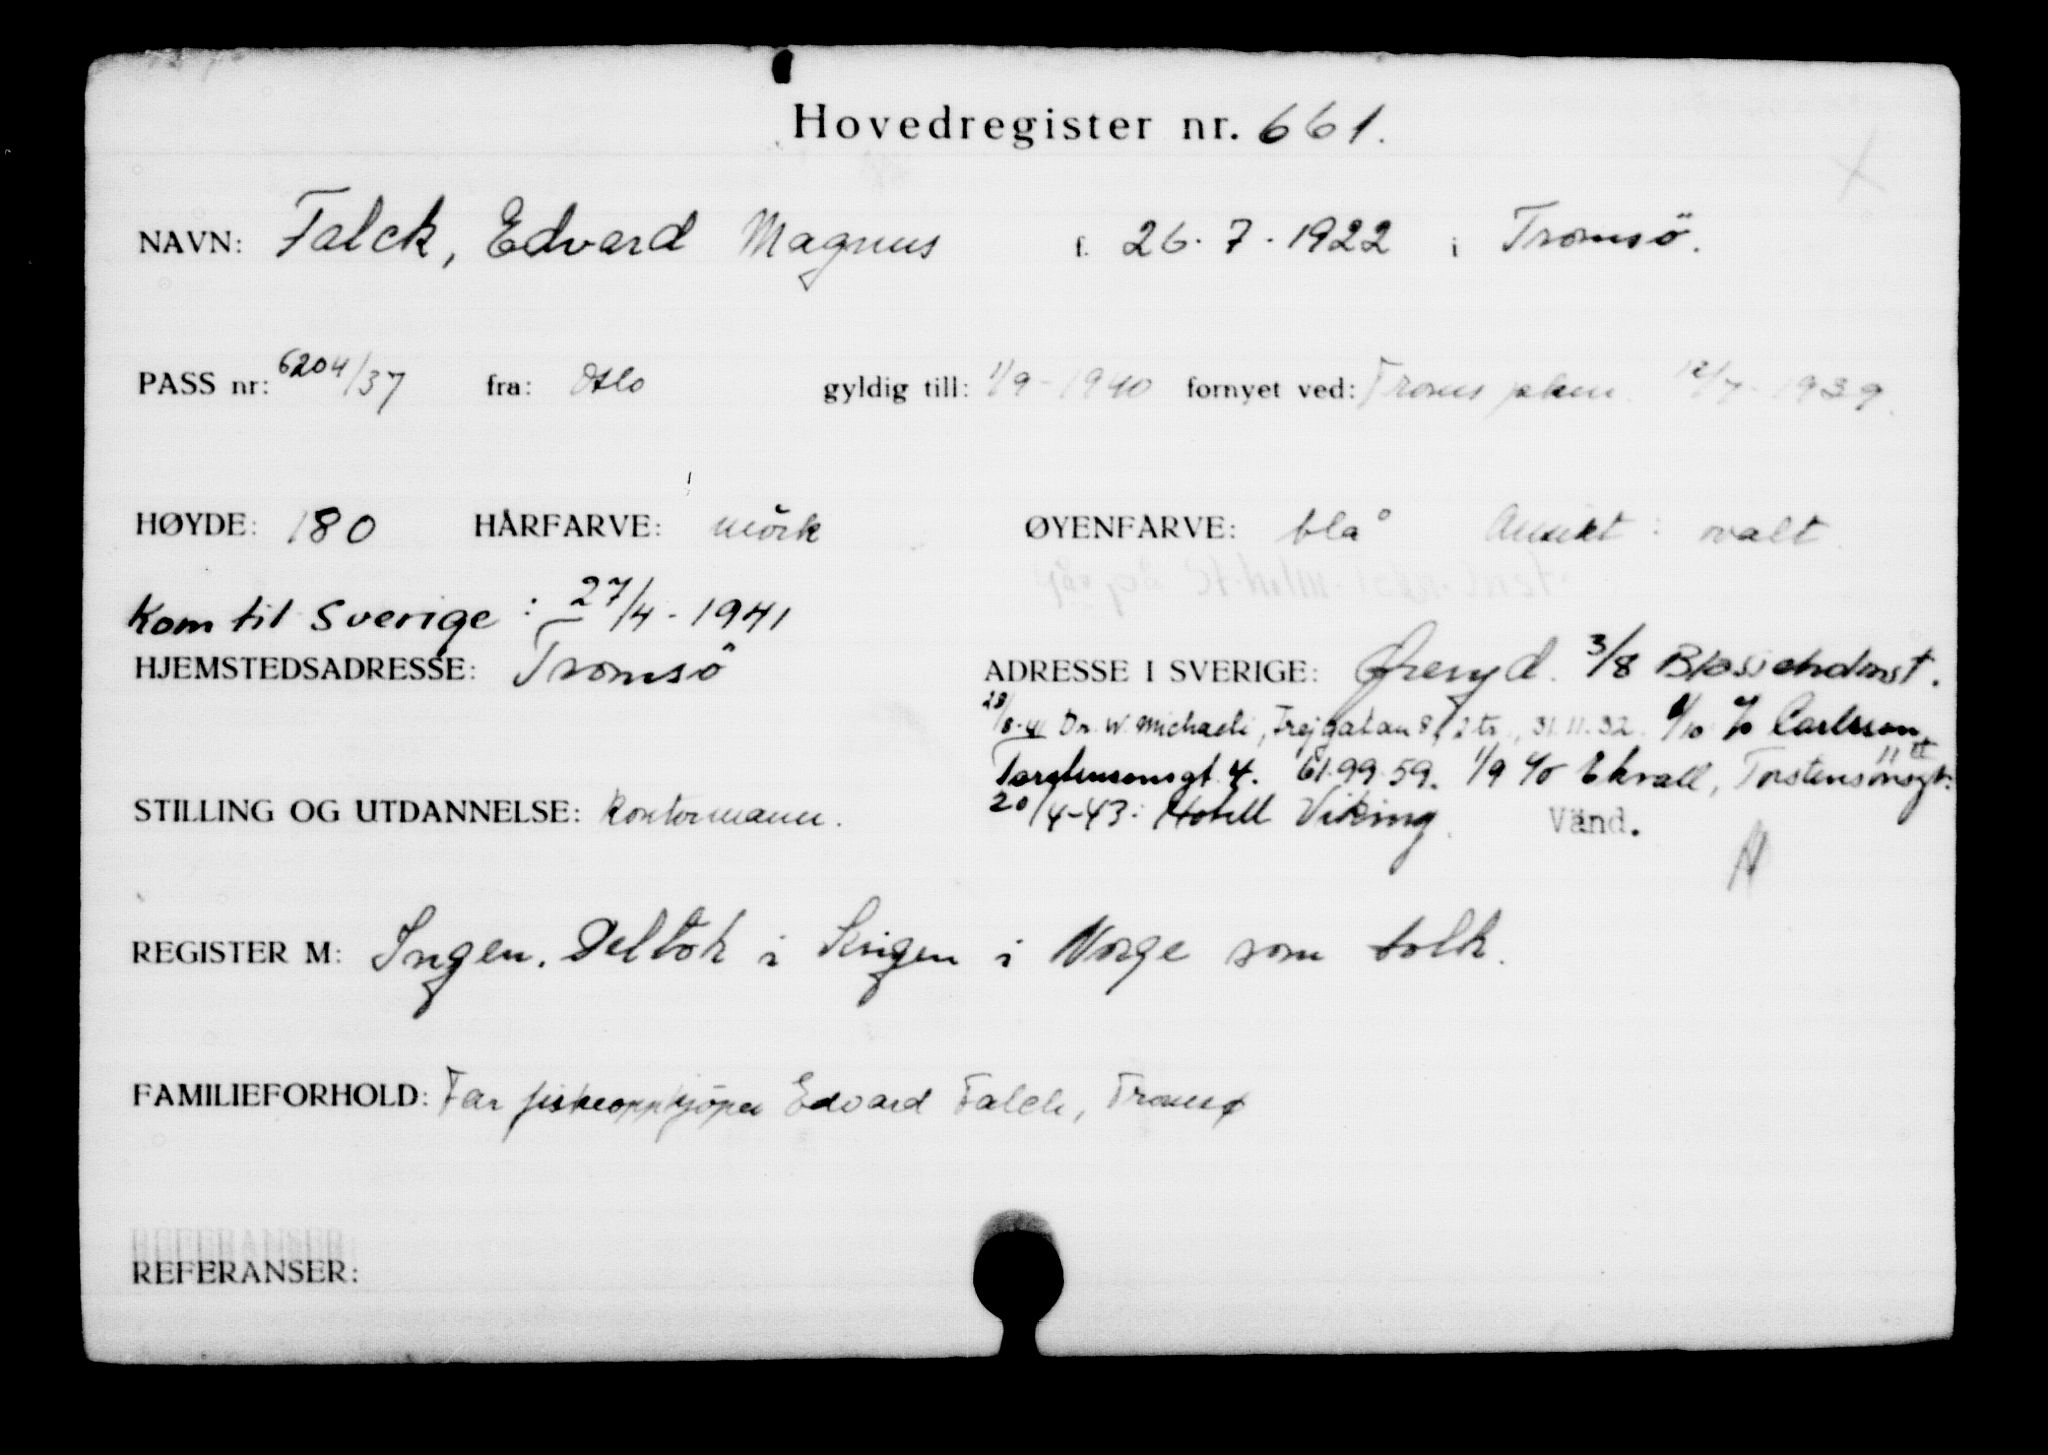 Hovedregister nr. 661.
NAVN: Falck, Edvard Magnus f. 26.7.1922 i Tromsö.
PASS nr: 6204/37 fra: Oslo gyldig till: 1/9-1940 fornyet ved: Troms 12/7-1939.
HØYDE: 180 HÅRFARVE: mörk ØYENFARVE: blå Ansikt: ovalt
Kom til Sverige: 27/4-1941
HJEMSTEDSADRESSE: Tromsö ADRESSE I SVERIGE: Öreryd. 3/8
28/8-41 Dr. W. Michaeli, Frejgatan 8, 2 tr., 31.11.32. c/o Carlsson,
Torstensonsgt. 4. 61.99.59. 1/9 c/o Ekvall, Torstensonsgt. 11 II
STILLING OG UTDANNELSE: Kontormann. 20/4-43: Hotell Viking. Vänd.
REGISTER M: Ingen. Deltok i Krigen i Norge som tolk.
FAMILIEFORHOLD: Far fiskeoppkjöper Edvard Falck, Tromsø
REFERANSER: